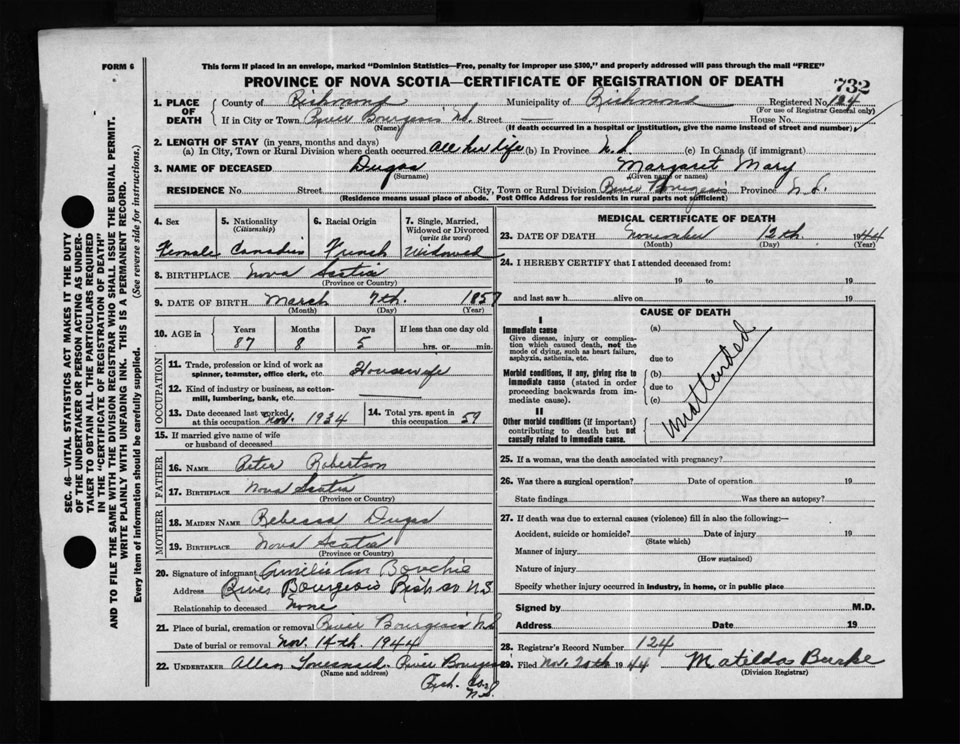 FORM 6
This form if placed in an envelope, marked "Dominion Statistics—Free, penalty for improper use $300," and properly addressed will pass through the mail "FREE"
PROVINCE OF NOVA SCOTIA—CERTIFICATE OF REGISTRATION OF DEATH
732
SEC. 46—VITAL STATISTICS ACT MAKES IT THE DUTY
OF THE UNDERTAKER OR PERSON ACTING AS UNDER-
TAKER TO OBTAIN ALL THE PARTICULARS REQUIRED
IN THE "CERTIFICATE OF REGISTRATION OF DEATH"
AND TO FILE THE SAME WITH THE DIVISION REGISTRAR WHO SHALL ISSUE THE BURIAL PERMIT.
WRITE PLAINLY WITH UNFADING INK. THIS IS A PERMANENT RECORD.
Every item of information should be carefully supplied. (See reverse side for instructions.)
1. PLACE OF DEATH
County of Richmond Municipality of Richmond Registered No. 124
(For use of Registrar General only)
If in City or Town River Bourgeois N.S. Street — House No.
(Name) (If death occurred in a hospital or institution, give the name instead of street and number)
2. LENGTH OF STAY (in years, months and days)
(a) In City, Town or Rural Division where death occurred All her life (b) In Province N.S. (c) In Canada (if immigrant)
3. NAME OF DECEASED Dugas Margaret Mary
(Surname) (Given name or names)
RESIDENCE No. Street City, Town or Rural Division River Bourgeois Province N.S.
(Residence means usual place of abode. Post Office Address for residents in rural parts not sufficient)
4. Sex
Female
5. Nationality
(Citizenship)
Canadian
6. Racial Origin
French
7. Single, Married,
Widowed or Divorced
(write the word)
Widowed
8. BIRTHPLACE Nova Scotia
(Province or Country)
9. DATE OF BIRTH March 7th. 1857
(Month) (Day) (Year)
10. AGE in Years Months Days If less than one day old
87 8 5 hrs. or min.
OCCUPATION
11. Trade, profession or kind of work as
spinner, teamster, office clerk, etc. Housewife
12. Kind of industry or business, as cotton-
mill, lumbering, bank, etc.
13. Date deceased last worked
at this occupation Nov. 1934
14. Total yrs. spent in
this occupation 59
15. If married give name of wife
or husband of deceased
FATHER
16. NAME Peter Robertson
17. BIRTHPLACE Nova Scotia
(Province or Country)
MOTHER
18. MAIDEN NAME Rebecca Dugas
19. BIRTHPLACE Nova Scotia
(Province or Country)
20. Signature of informant
Address River Bourgeois Rich co N.S.
Relationship to deceased None
21. Place of burial, cremation or removal River Bourgeois N.S.
Date of burial or removal Nov. 14th. 1944
22. UNDERTAKER Allan River Bourgeois
(Name and address)
Rich. Co.
N.S.
MEDICAL CERTIFICATE OF DEATH
23. DATE OF DEATH November 12th. 1944
(Month) (Day) (Year)
24. I HEREBY CERTIFY that I attended deceased from:
19 to 19
and last saw h alive on 19
CAUSE OF DEATH
I
Immediate cause
Give disease, injury or complica-
tion which caused death, not the
mode of dying, such as heart failure,
asphyxia, asthenia, etc.
(a)
due to
Morbid conditions, if any, giving rise to
immediate cause (stated in order
proceeding backwards from im-
mediate cause).
(b)
due to
(c)
II
Other morbid conditions (if important)
contributing to death but not
causally related to immediate cause.
Unattended
25. If a woman, was the death associated with pregnancy?
26. Was there a surgical operation? Date of operation 19
State findings Was there an autopsy?
27. If death was due to external causes (violence) fill in also the following:—
Accident, suicide or homicide? Date of injury 19
(State which)
Manner of injury
(How sustained)
Nature of injury
Specify whether injury occurred in industry, in home, or in public place
Signed by M.D.
Address Date 19
28. Registrar's Record Number 124
29. Filed Nov. 20th 1944 Matilda Burke
(Division Registrar)